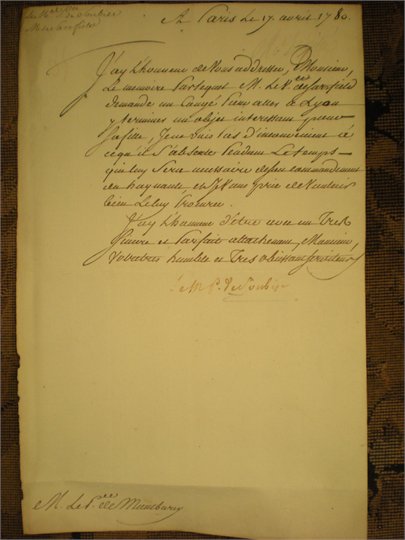 A Paris le 17 avril 1780.
J'ay l'honneur de vous addresser, Monsieur,
Le memoire par lequel M. Le V.te de Sarsfield
demande un Congé pour aller à Lyon
y terminer un objet interessant pour
sa fille, Je ne vois pas d'inconvenient à
ce qu'il s'absente pendant Le temps
qui luy sera necessaire de son commandement
du haynault, et Je vous prie de vouloir
bien Le luy procurer.
J'ay L'honneur d'être avec un Tres
sincere et parfait attachement, Monsieur,
Votre tres humble et Tres obeissant serviteur
Le M. P. de Soubise
M. Le P.ce de Montbarey